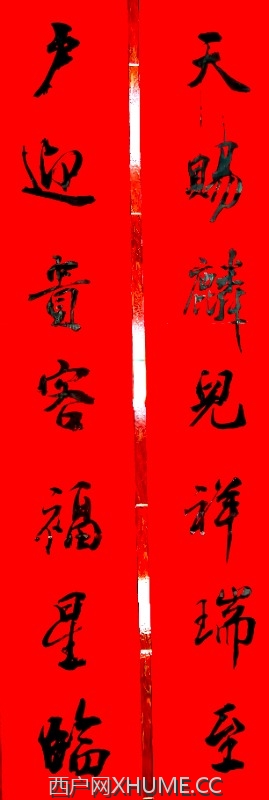 天赐麟儿祥瑞至
户迎贵客福星临
西户网XHUME.CC